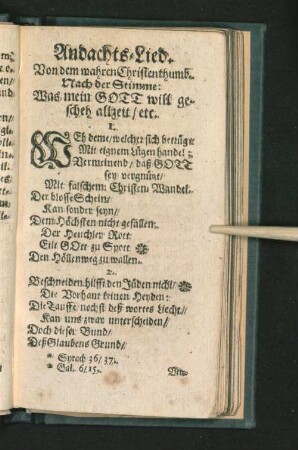 Andachts-Lied.
Von dem wahren Christenthumb.
Nach der Stimme:
Was mein GOTT will ge-
scheh allzeit / etc.
1.
WEh deme / welcher sich betrügt
Mit eignem Lügen handel:
Vermeinend / daß GOTT
sey vergnügt /
Mit falschem Christen-Wandel.
Der blosse Schein /
Kan sonder seyn /
Dem Höchsten nicht gefallen:
Der Heuchler Rott
Eilt GOtt zu Spott
Den Höllenweg zu wallen.
2.
Beschneiden hilfft den Jüden nicht /
Die Vorhaut keinen Heyden:
Die Tauffe / nechst deß wortes Liecht //
Kan uns zwar unterscheiden /
Doch dieser Bund /
Deß Glaubens Grund /
* Syrach 36/37.
* Gal. 6/15.